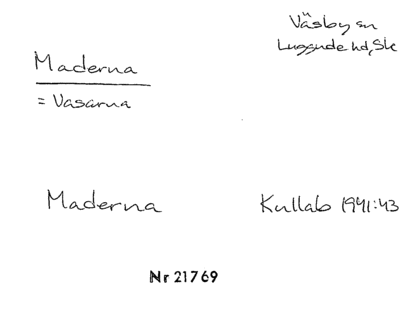 Väsby sn
Luggude hd, Sk
Maderna
= Vasarna
Maderna
Kullab 1941:43
Nr 21769